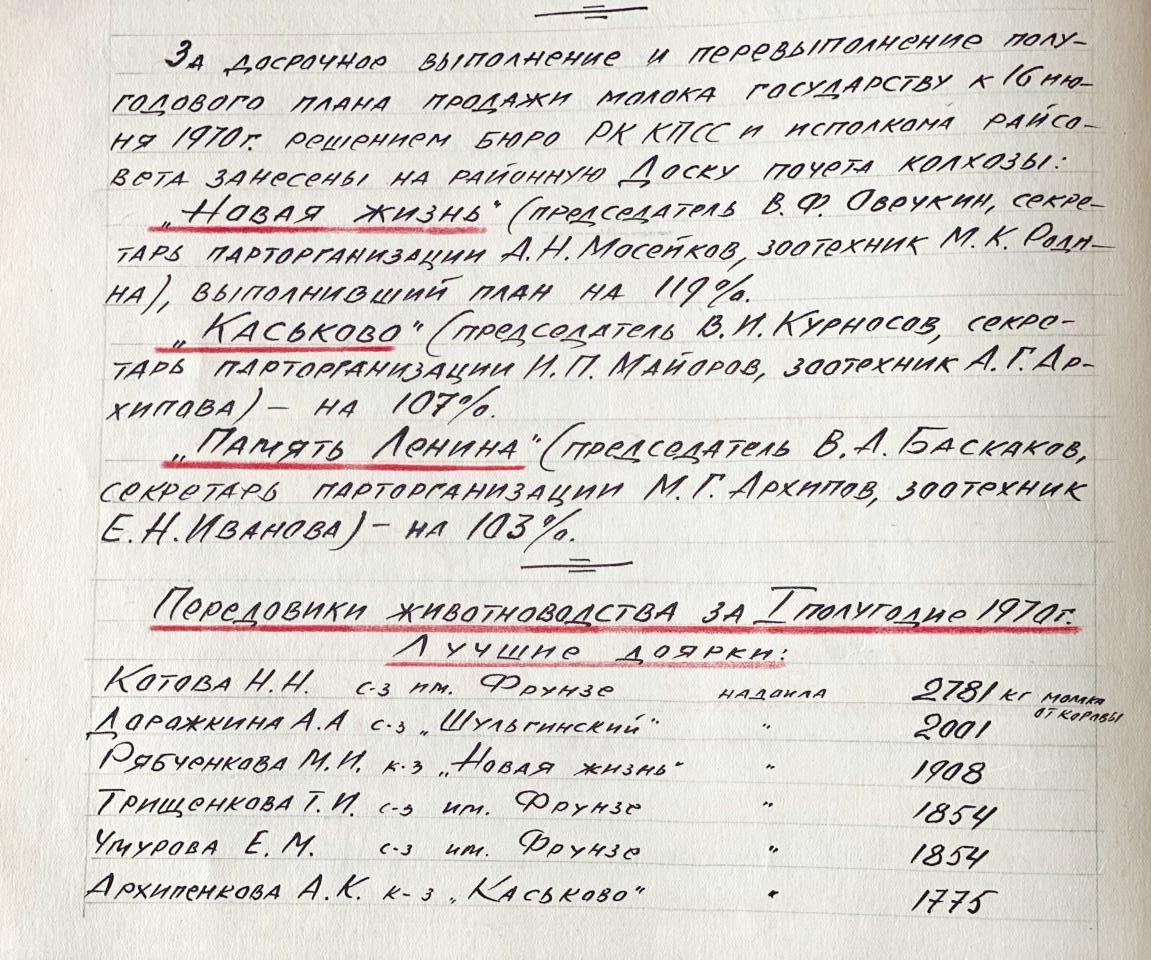 За досрочное выполнение и перевыполнение полу-
годового плана продажи молока государству к 16 ию-
ня 1970г. решением бюро РК КПСС и исполкома райсо-
вета занесены на районную Доску почета колхозы:
„Новая жизнь" (председатель В.Ф. Овечкин, секре-
тарь парторганизации Д.Н. Мосейков, зоотехник М.К. Роди-
на), выполнивший план на 119%.
„Каськово" (председатель В.И. Курносов, секре-
тарь парторганизации И.П. Майоров, зоотехник А.Г. Ар-
хипова) – на 107%.
„Память Ленина" (председатель В.А. Баскаков,
секретарь парторганизации М.Г. Архипов, зоотехник
Е.Н. Иванова) – на 103%.
Передовики животноводства за I полугодие 1970г.
Лучшие доярки:
Котова Н.Н. с-з им. Фрунзе надоила 2781 кг молока от коровы
Даражкина А.А с-з „Шульгинский" " 2001
Рябченкова М.И. к-з „Новая жизнь" " 1908
Трищенкова Т.И. с-з им. Фрунзе " 1854
Чмурова Е.М. с-з им. Фрунзе " 1854
Архипенкова А.К. к-з „Каськово" " 1775